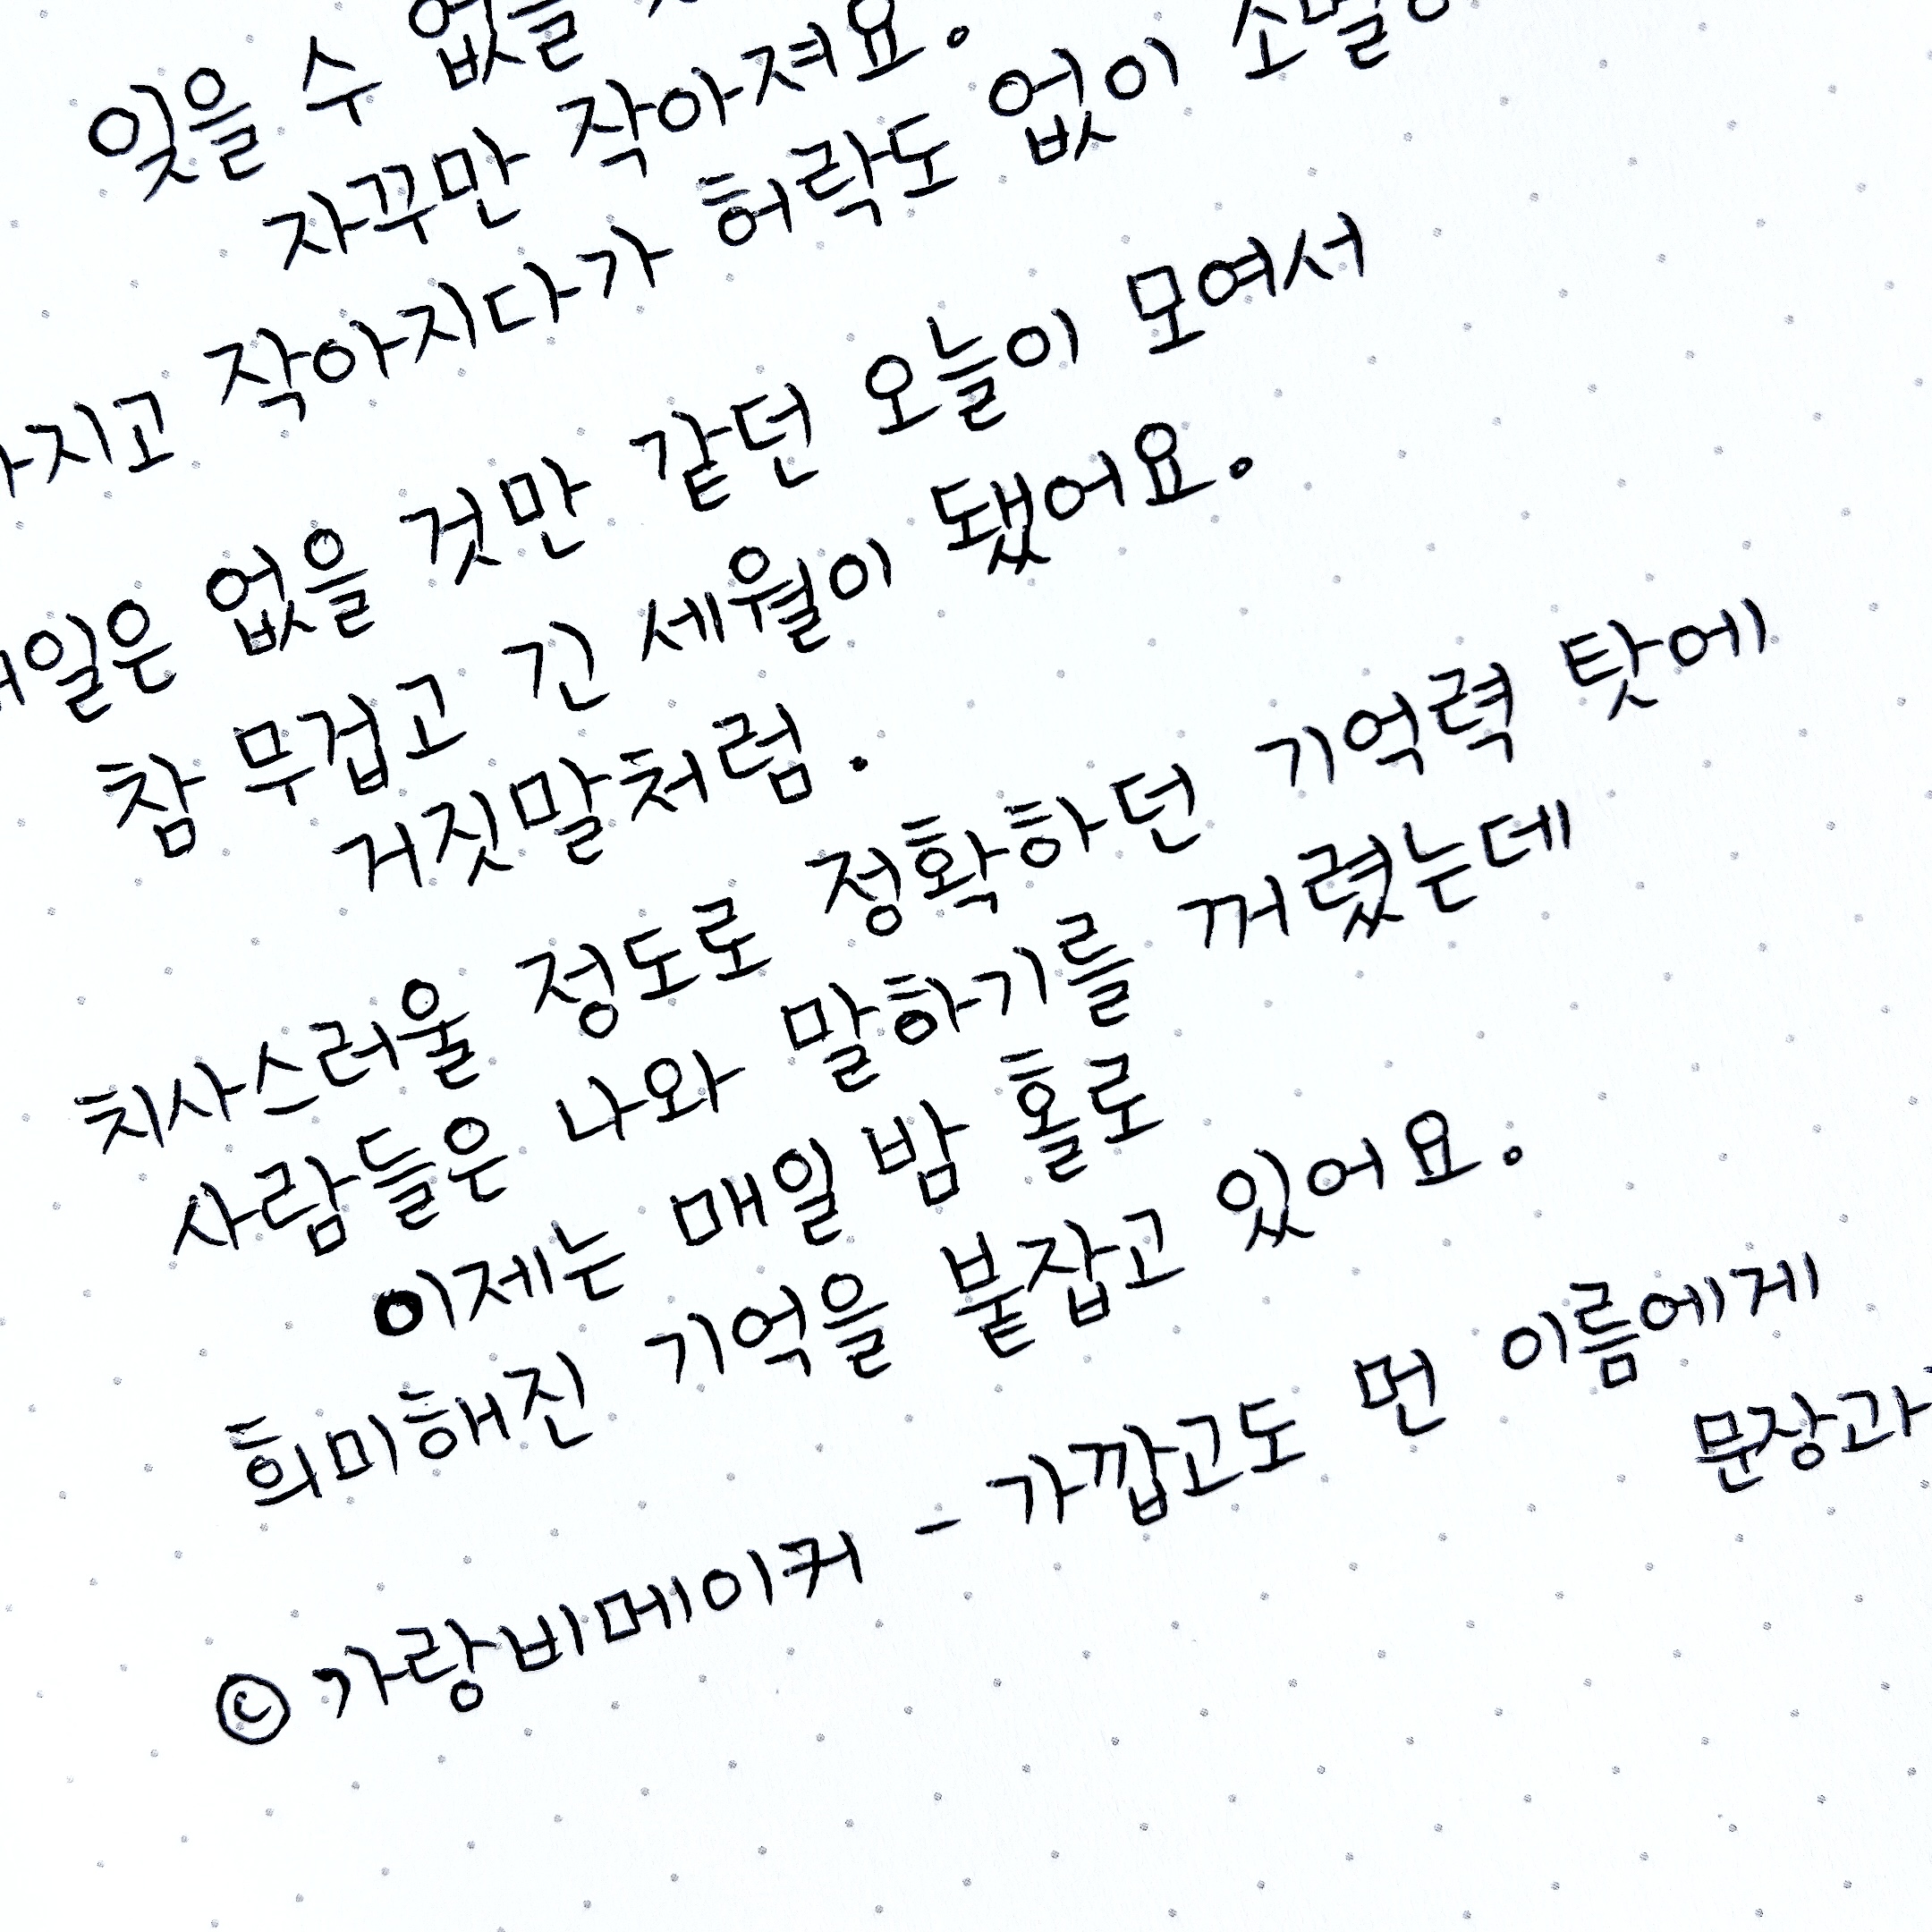 잊을 수 없을
자꾸만 작아져요.
지고 작아지다가 허락도 없이
일은 없을 것만 같던 오늘이 모여서
참 무겁고 긴 세월이 됐어요.
거짓말처럼.
치사스러울 정도로 정확하던 기억력 탓에
사람들은 나와 말하기를 꺼렸는데
이제는 매일 밤 홀로
희미해진 기억을 붙잡고 있어요.
©가랑비메이커 - 가깝고도 먼 이름에게
문장과